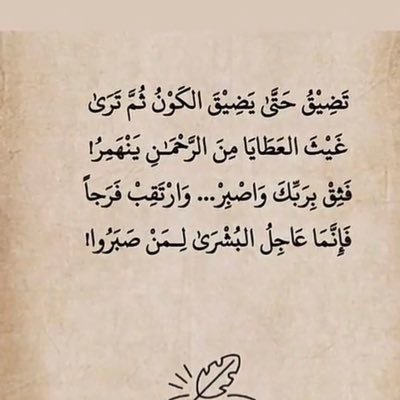 تَضِيْقُ حَتَّىٰ يَضِيْقَ الكَوْنُ ثُمَّ تَرَىٰ
غَيْثَ العَطَايَا مِنَ الرَّحْمَـٰنِ يَنْهَمِرُ!
فَثِقْ بِرَبِّكَ وَاصْبِرْ... وَارْتَقِبْ فَرَجاً
فَإِنَّمَا عَاجِلُ البُشْرَىٰ لِـمَنْ صَبَرُوا!